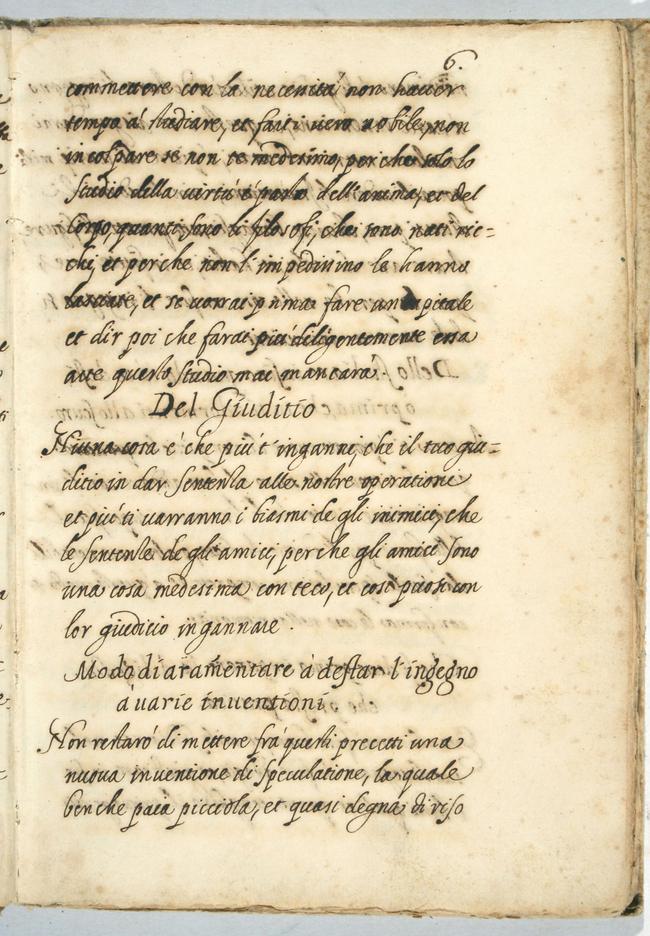 6.
commettere con la necessità non hauer
tempo à studiare, et farti uero nobile, non
incolpare se non te medesimo, perche solo lo
studio della uirtù è pasto dell'anima, et del
Corpo, quanti sono li filosofi, che sono nati ric=
chi, et perche non l'impedissino le hanno
lasciate, et se uorrai prima fare un capitale
et dir poi che farai più diligentemente essa
arte questo studio mai mancarà.
Del Giuditio
Niuna cosa è che più t'inganni, che il tuo giu=
ditio in dar sentenza alle nostre operationi
et più ti uarranno i biasmi de gli inimici, che
le sentenze de gl'amici, perche gli amici sono
una cosa medesima con teco, et così puosi con
lor giudicio ingannare.
Modo di aramentare à destar l'ingegno
à uarie inuentioni.
Non restarò di mettere frà questi precetti una
nuoua inuentione di speculatione, la quale
benche paia picciola, et quasi degna di riso